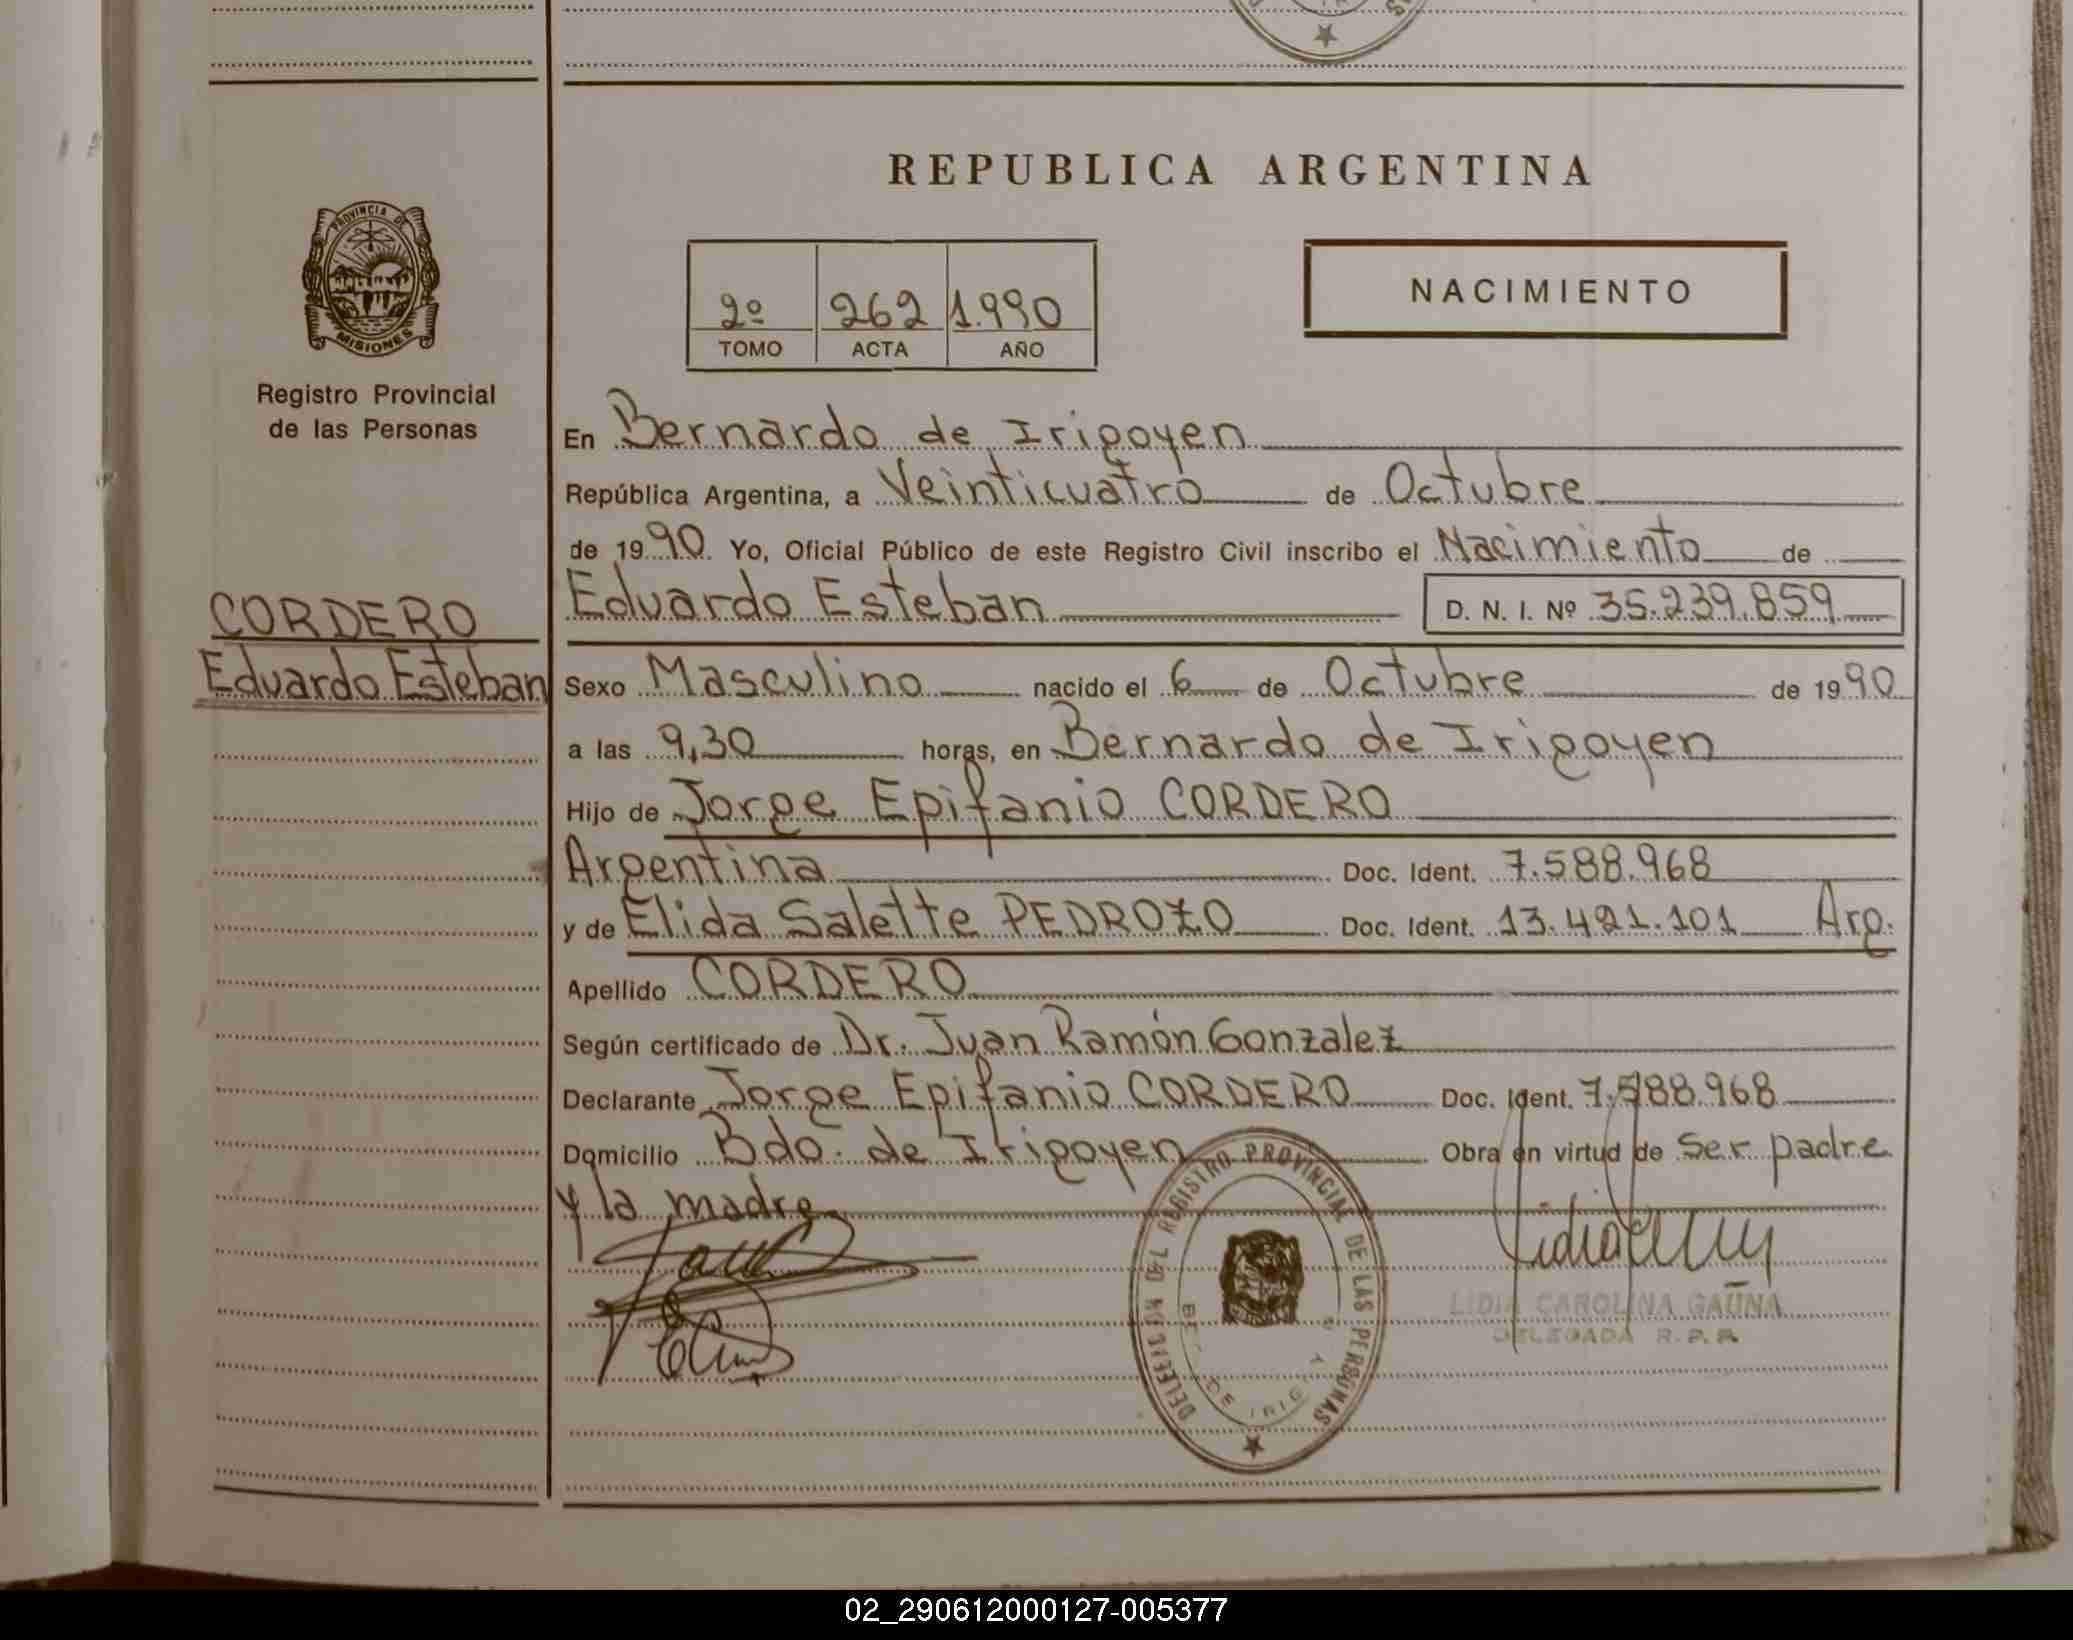 REPUBLICA ARGENTINA
PROVINCIA DE
MISIONES
Registro Provincial
de las Personas
2º 262 1.990
TOMO ACTA AÑO
NACIMIENTO
CORDERO
Eduardo Esteban
En Bernardo de Irigoyen
República Argentina, a Veinticuatro de Octubre
de 1990. Yo, Oficial Público de este Registro Civil inscribo el Nacimiento de
Eduardo Esteban D. N. I. Nº 35.239.859
Sexo Masculino nacido el 6 de Octubre de 1990
a las 9,30 horas, en Bernardo de Irigoyen
Hijo de Jorge Epifanio CORDERO
Argentina Doc. Ident. 7.588.968
y de Elida Salette PEDROZO Doc. Ident. 13.421.101 Arg.
Apellido CORDERO
Según certificado de Dr. Juan Ramón Gonzalez
Declarante Jorge Epifanio CORDERO Doc. Ident. 7.588.968
Domicilio Bdo. de Irigoyen Obra en virtud de Ser padre
y la madre
DELEGACION DEL REGISTRO PROVINCIAL DE LAS PERSONAS
LIDIA CAROLINA GAUNA
DELEGADA R.P.P.
02_290612000127-005377